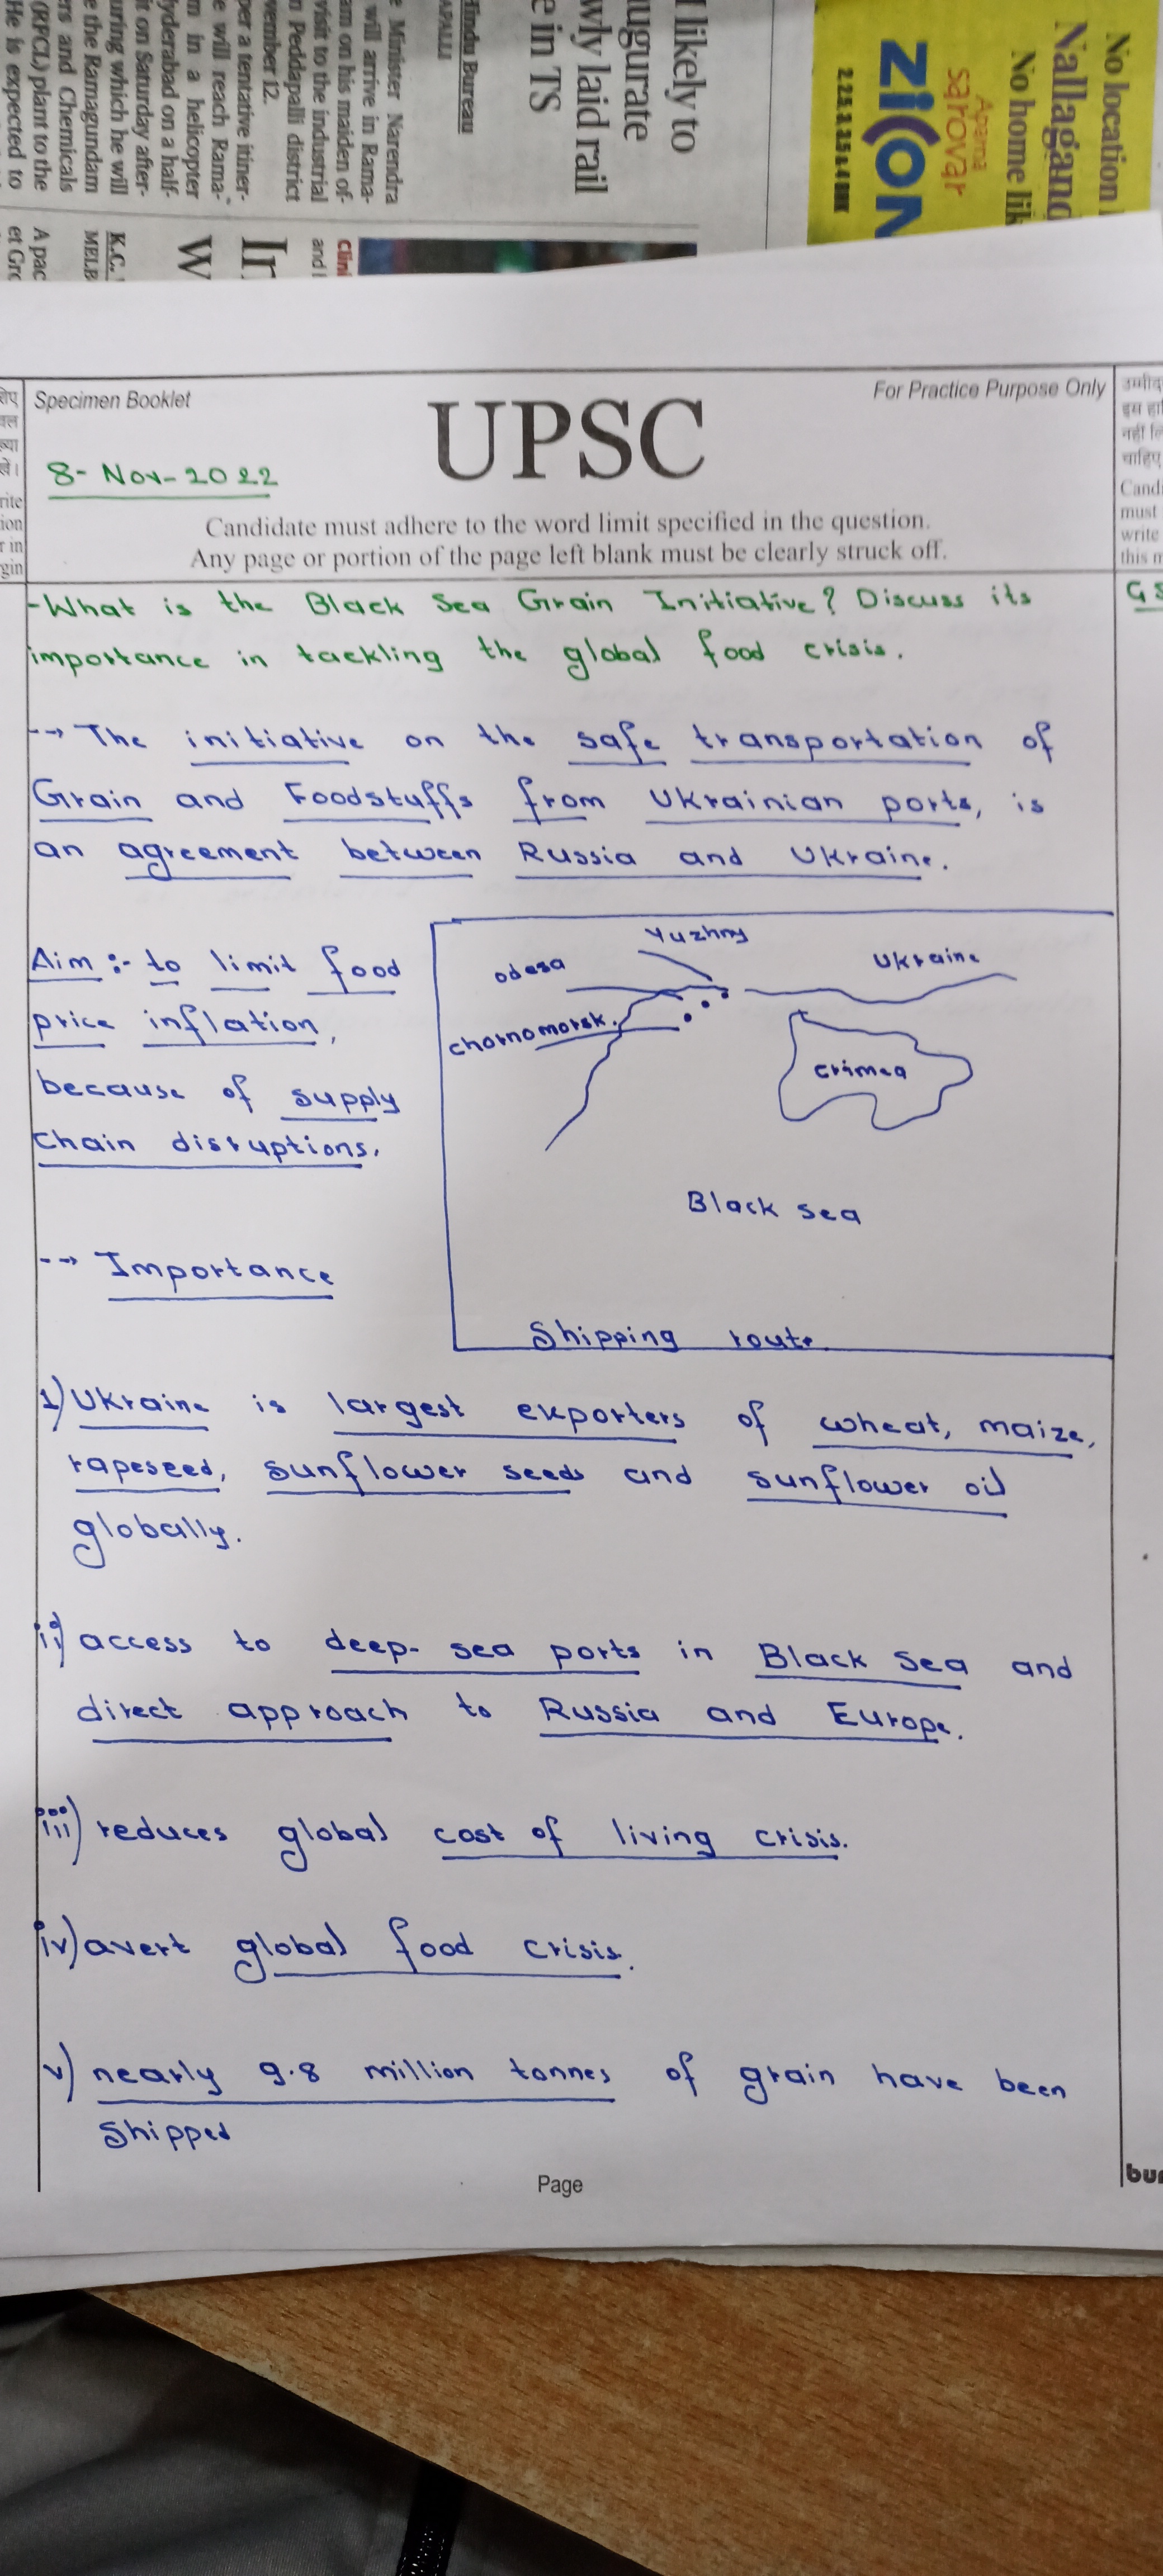 No location
Nallagand
No home lik
Aparna
Sarovar
ZICON
2, 2.5, 3, 3.5 & 4 BHK
l likely to
augurate
wly laid rail
e in TS
Hindu Bureau
APALLI
e Minister Narendra
will arrive in Rama-
am on his maiden of-
visit to the industrial
n Peddapalli district
vember 12.
per a tentative itiner-
e will reach Rama-
m in a helicopter
yderabad on a half-
it on Saturday after-
uring which he will
e the Ramagundam
ers and Chemicals
(RFCL) plant to the
He is expected to
Clini
and l
In
W
K.C.
MELB
A pac
et Gro
Specimen Booklet
UPSC
For Practice Purpose Only
8-Nov-2022
Candidate must adhere to the word limit specified in the question.
Any page or portion of the page left blank must be clearly struck off.
-What is the Black Sea Grain Initiative? Discuss its
importance in tackling the global food crisis.
--→ The initiative on the safe transportation of
Grain and Foodstuffs from Ukrainian ports, is
an agreement between Russia and Ukraine.
Aim :- to limit food
price inflation,
because of supply
chain disruptions.
Yuzhny
odesa
Ukraine
chornomorsk.
crimea
Black sea
Shipping route
--→ Importance
1) Ukraine is largest exporters of wheat, maize,
rapeseed, sunflower seeds and sunflower oil
globally.
ii) access to deep-sea ports in Black Sea and
direct approach to Russia and Europe.
iii) reduces global cost of living crisis.
iv) avert global food crisis.
v) nearly 9.8 million tonnes of grain have been
Shipped
Page
rite
ion
r in
gin
उम्मीद
इस हा
नहीं लि
चाहिए
Candi
must
write
this m
GS